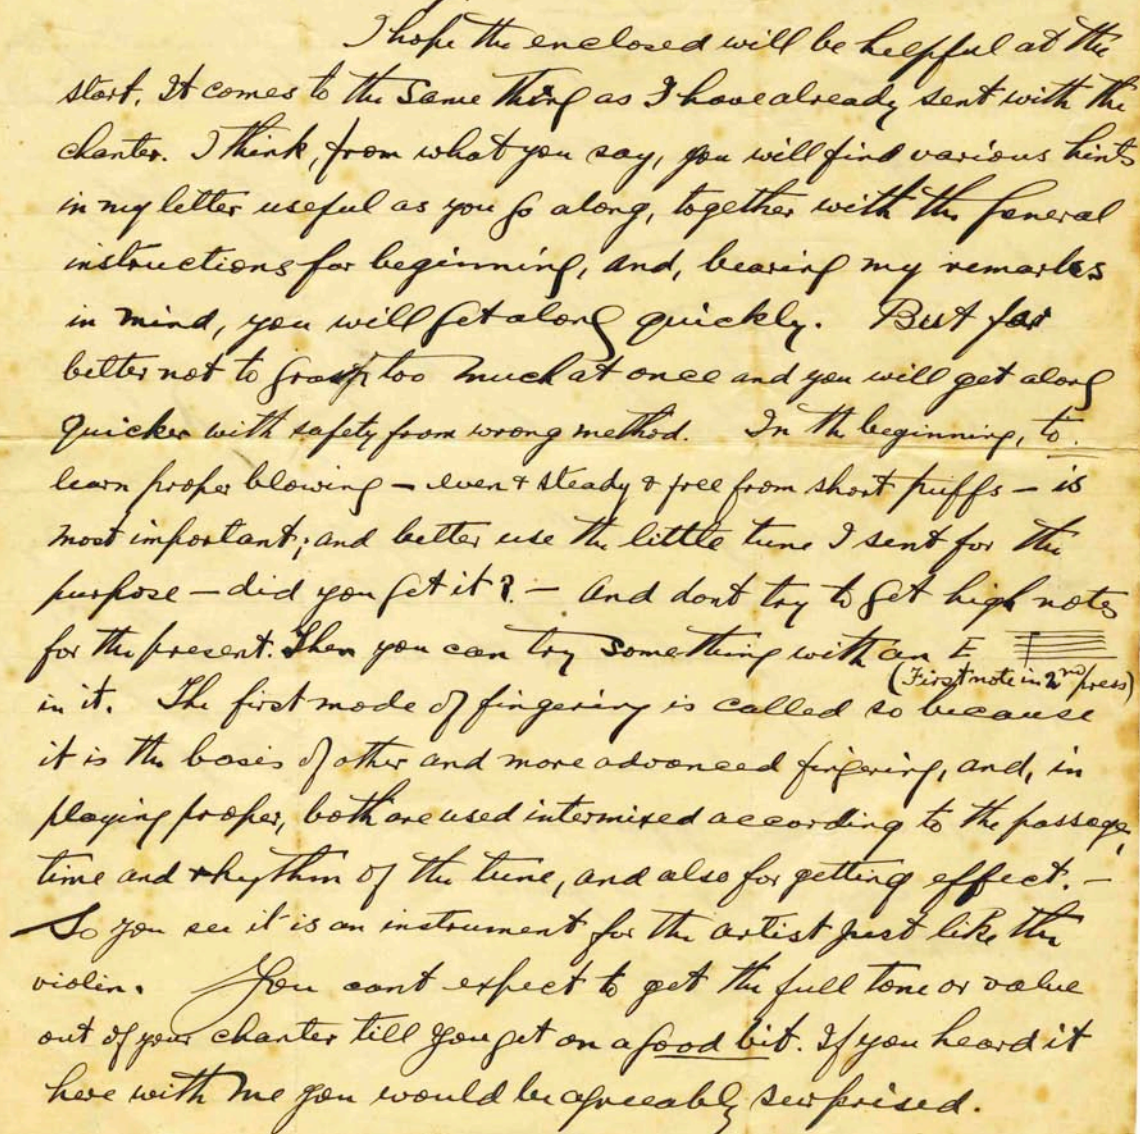 I hope the enclosed will be helpful at the
start. It comes to the same thing as I have already sent with the
chanter. I think, from what you say, you will find various hints
in my letter useful as you go along, together with the general
instructions for beginning, and, bearing my remarks
in mind, you will get along quickly. But far
better not to grasp too much at once and you will get along
quicker with safety from wrong method. In the beginning, to
learn proper blowing – even & steady & free from short puffs – is
most important; and better use the little tune I sent for the
purpose – did you get it? – and dont try to get high notes
for the present. Then you can try something with an E
(First note in 2nd press)
in it. The first mode of fingering is called so because
it is the basis of other and more advanced fingering, and, in
playing proper, both are used intermixed according to the passage,
time and rhythm of the tune, and also for getting effect. –
So you see it is an instrument for the artist just like the
violin. You cant expect to get the full tone or value
out of your chanter till you get on a good bit. If you heard it
here with me you would be agreeably surprised.